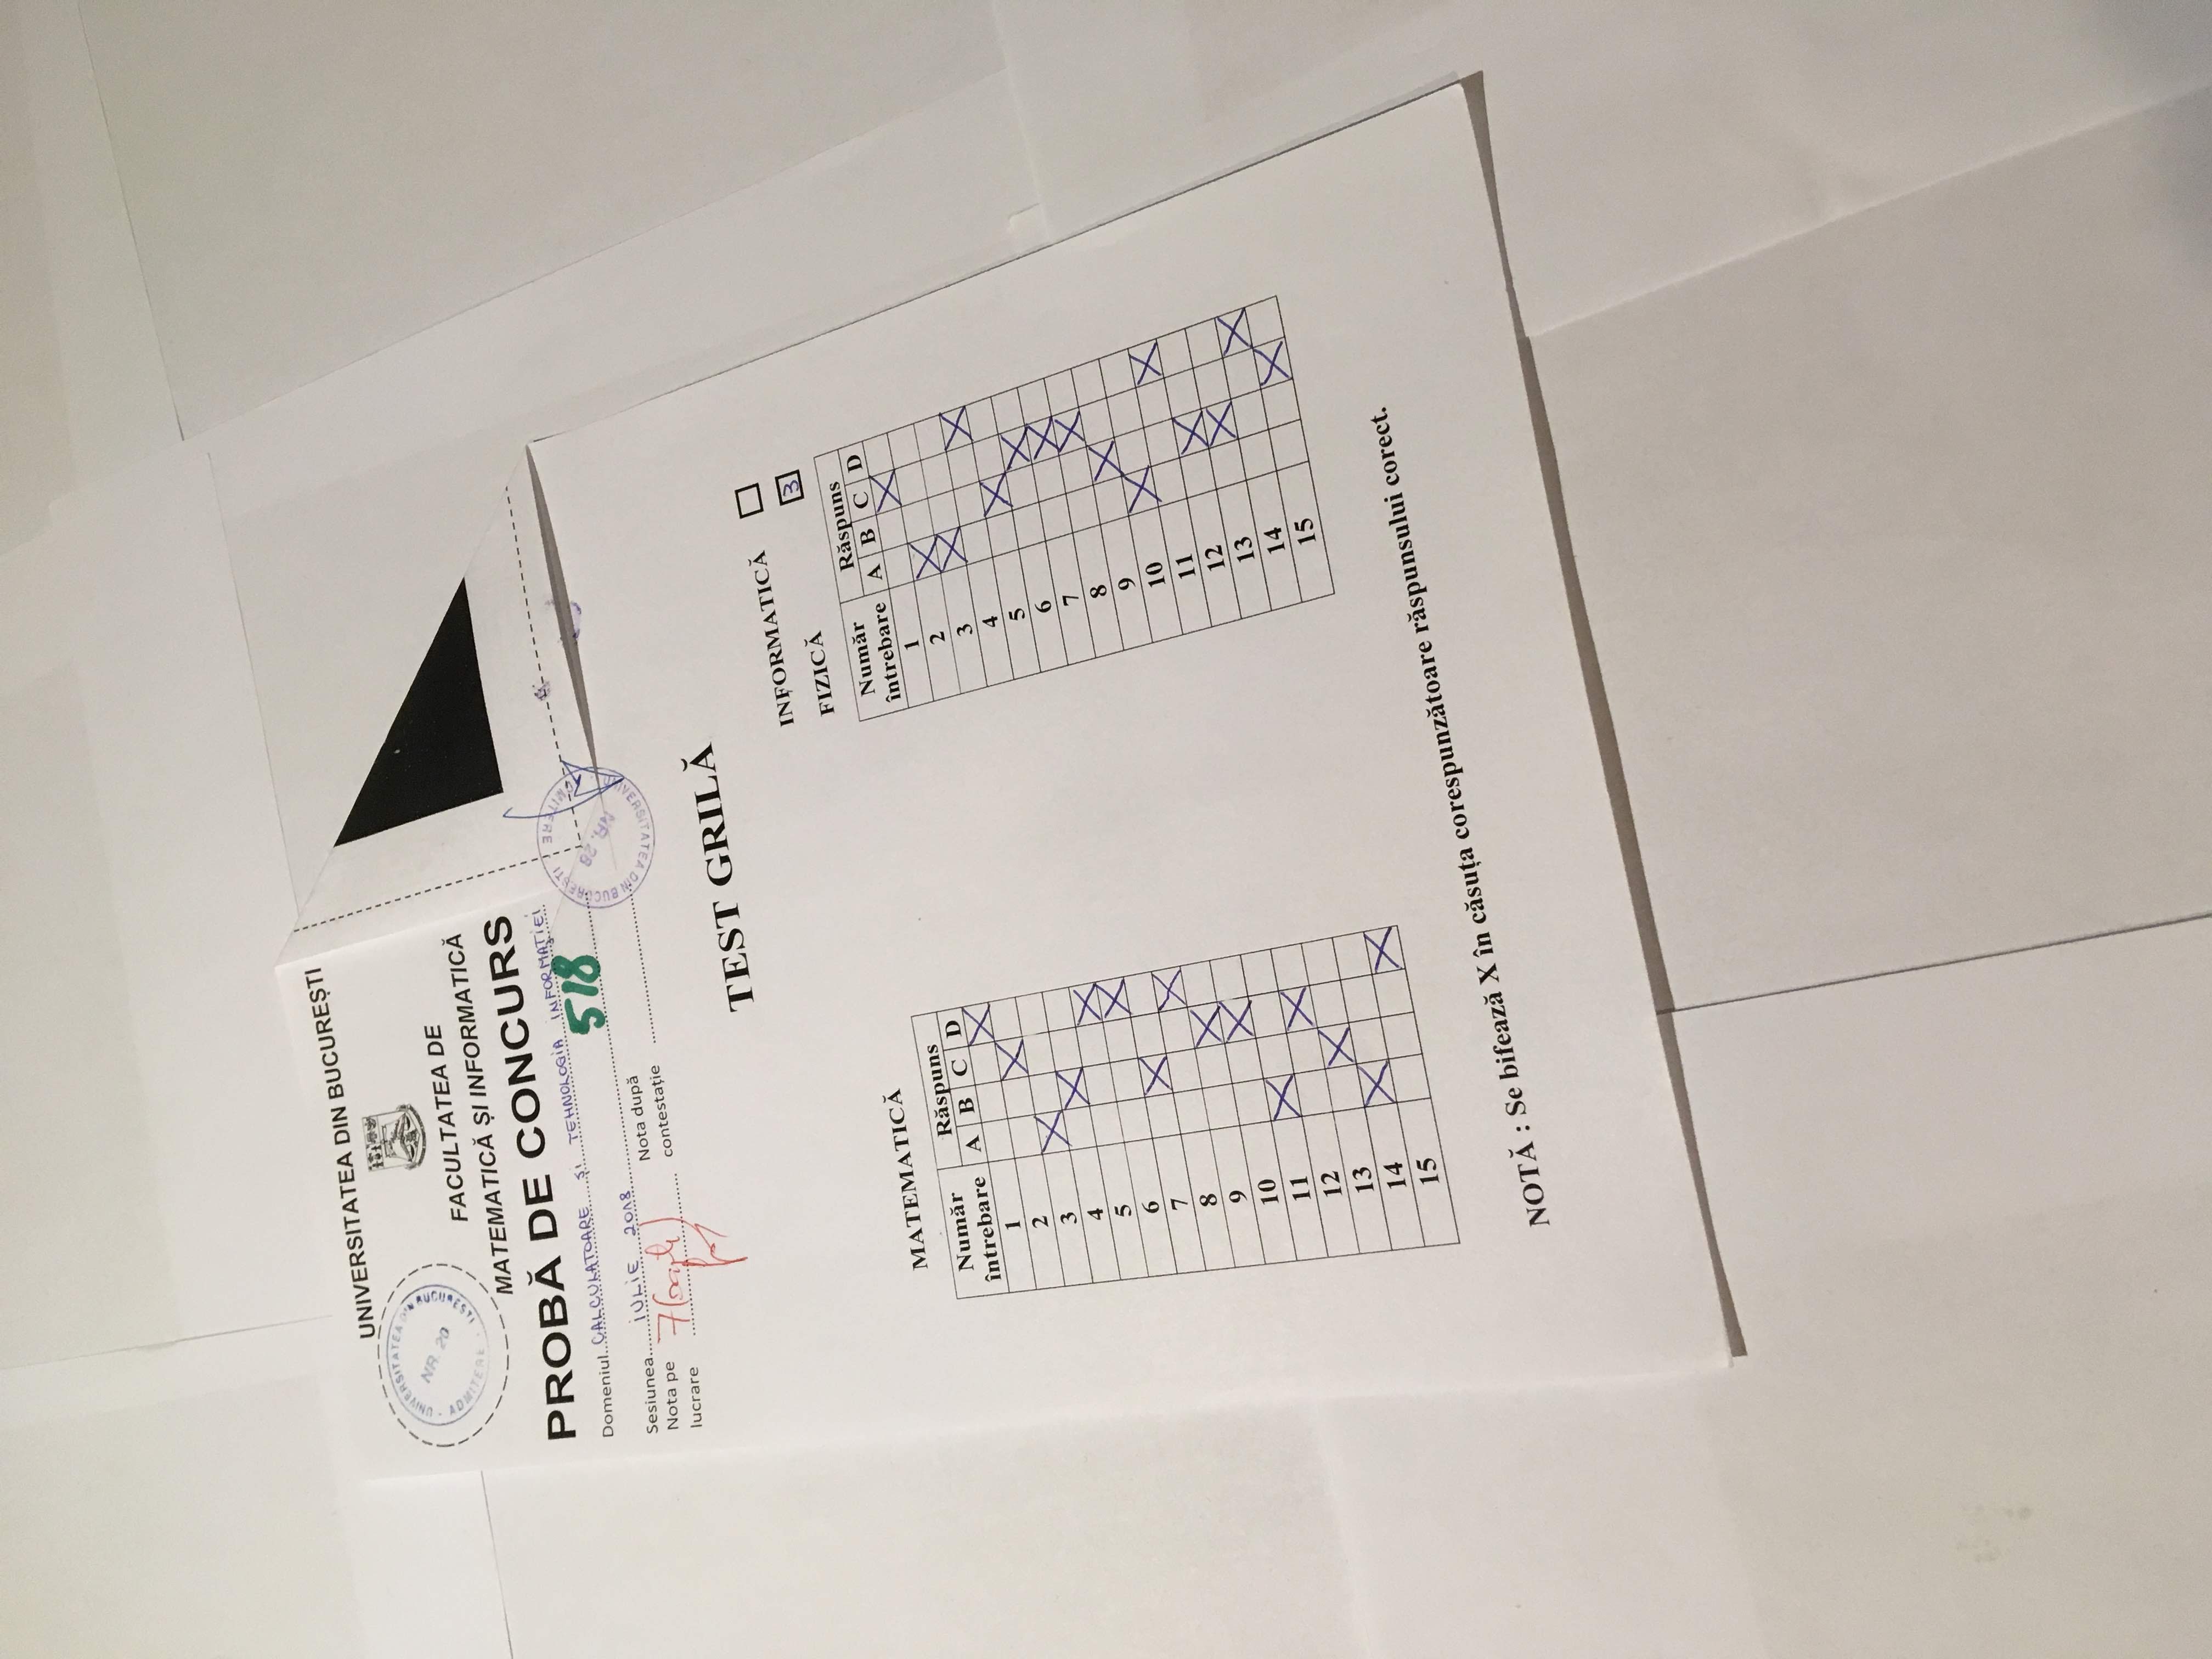 UNIVERSITATEA DIN BUCUREȘTI
UNIVERSITATEA DIN BUCUREȘTI
NR. 20
ADMITERE
FACULTATEA DE
MATEMATICĂ ȘI INFORMATICĂ
PROBĂ DE CONCURS
Domeniul CALCULATOARE ȘI TEHNOLOGIA INFORMAȚIEI
518
Sesiunea IULIE 2018
Nota pe lucrare 7 (șapte)
Nota după contestație
UNIVERSITATEA DIN BUCUREȘTI
NR. 28
ADMITERE
TEST GRILĂ
INFORMATICĂ
FIZICĂ 3
MATEMATICĂ
Număr întrebare Răspuns
A B C D
1 X
2 X
3 X
4 X
5 X
6 X
7 X
8 X
9 X
10 X
11 X
12 X
13 X
14 X
15 X
Număr întrebare Răspuns
A B C D
1 X
2 X
3 X
4 X
5 X
6 X
7 X
8 X
9 X
10 X
11 X
12 X
13 X
14 X
15 X
NOTĂ : Se bifează X în căsuța corespunzătoare răspunsului corect.